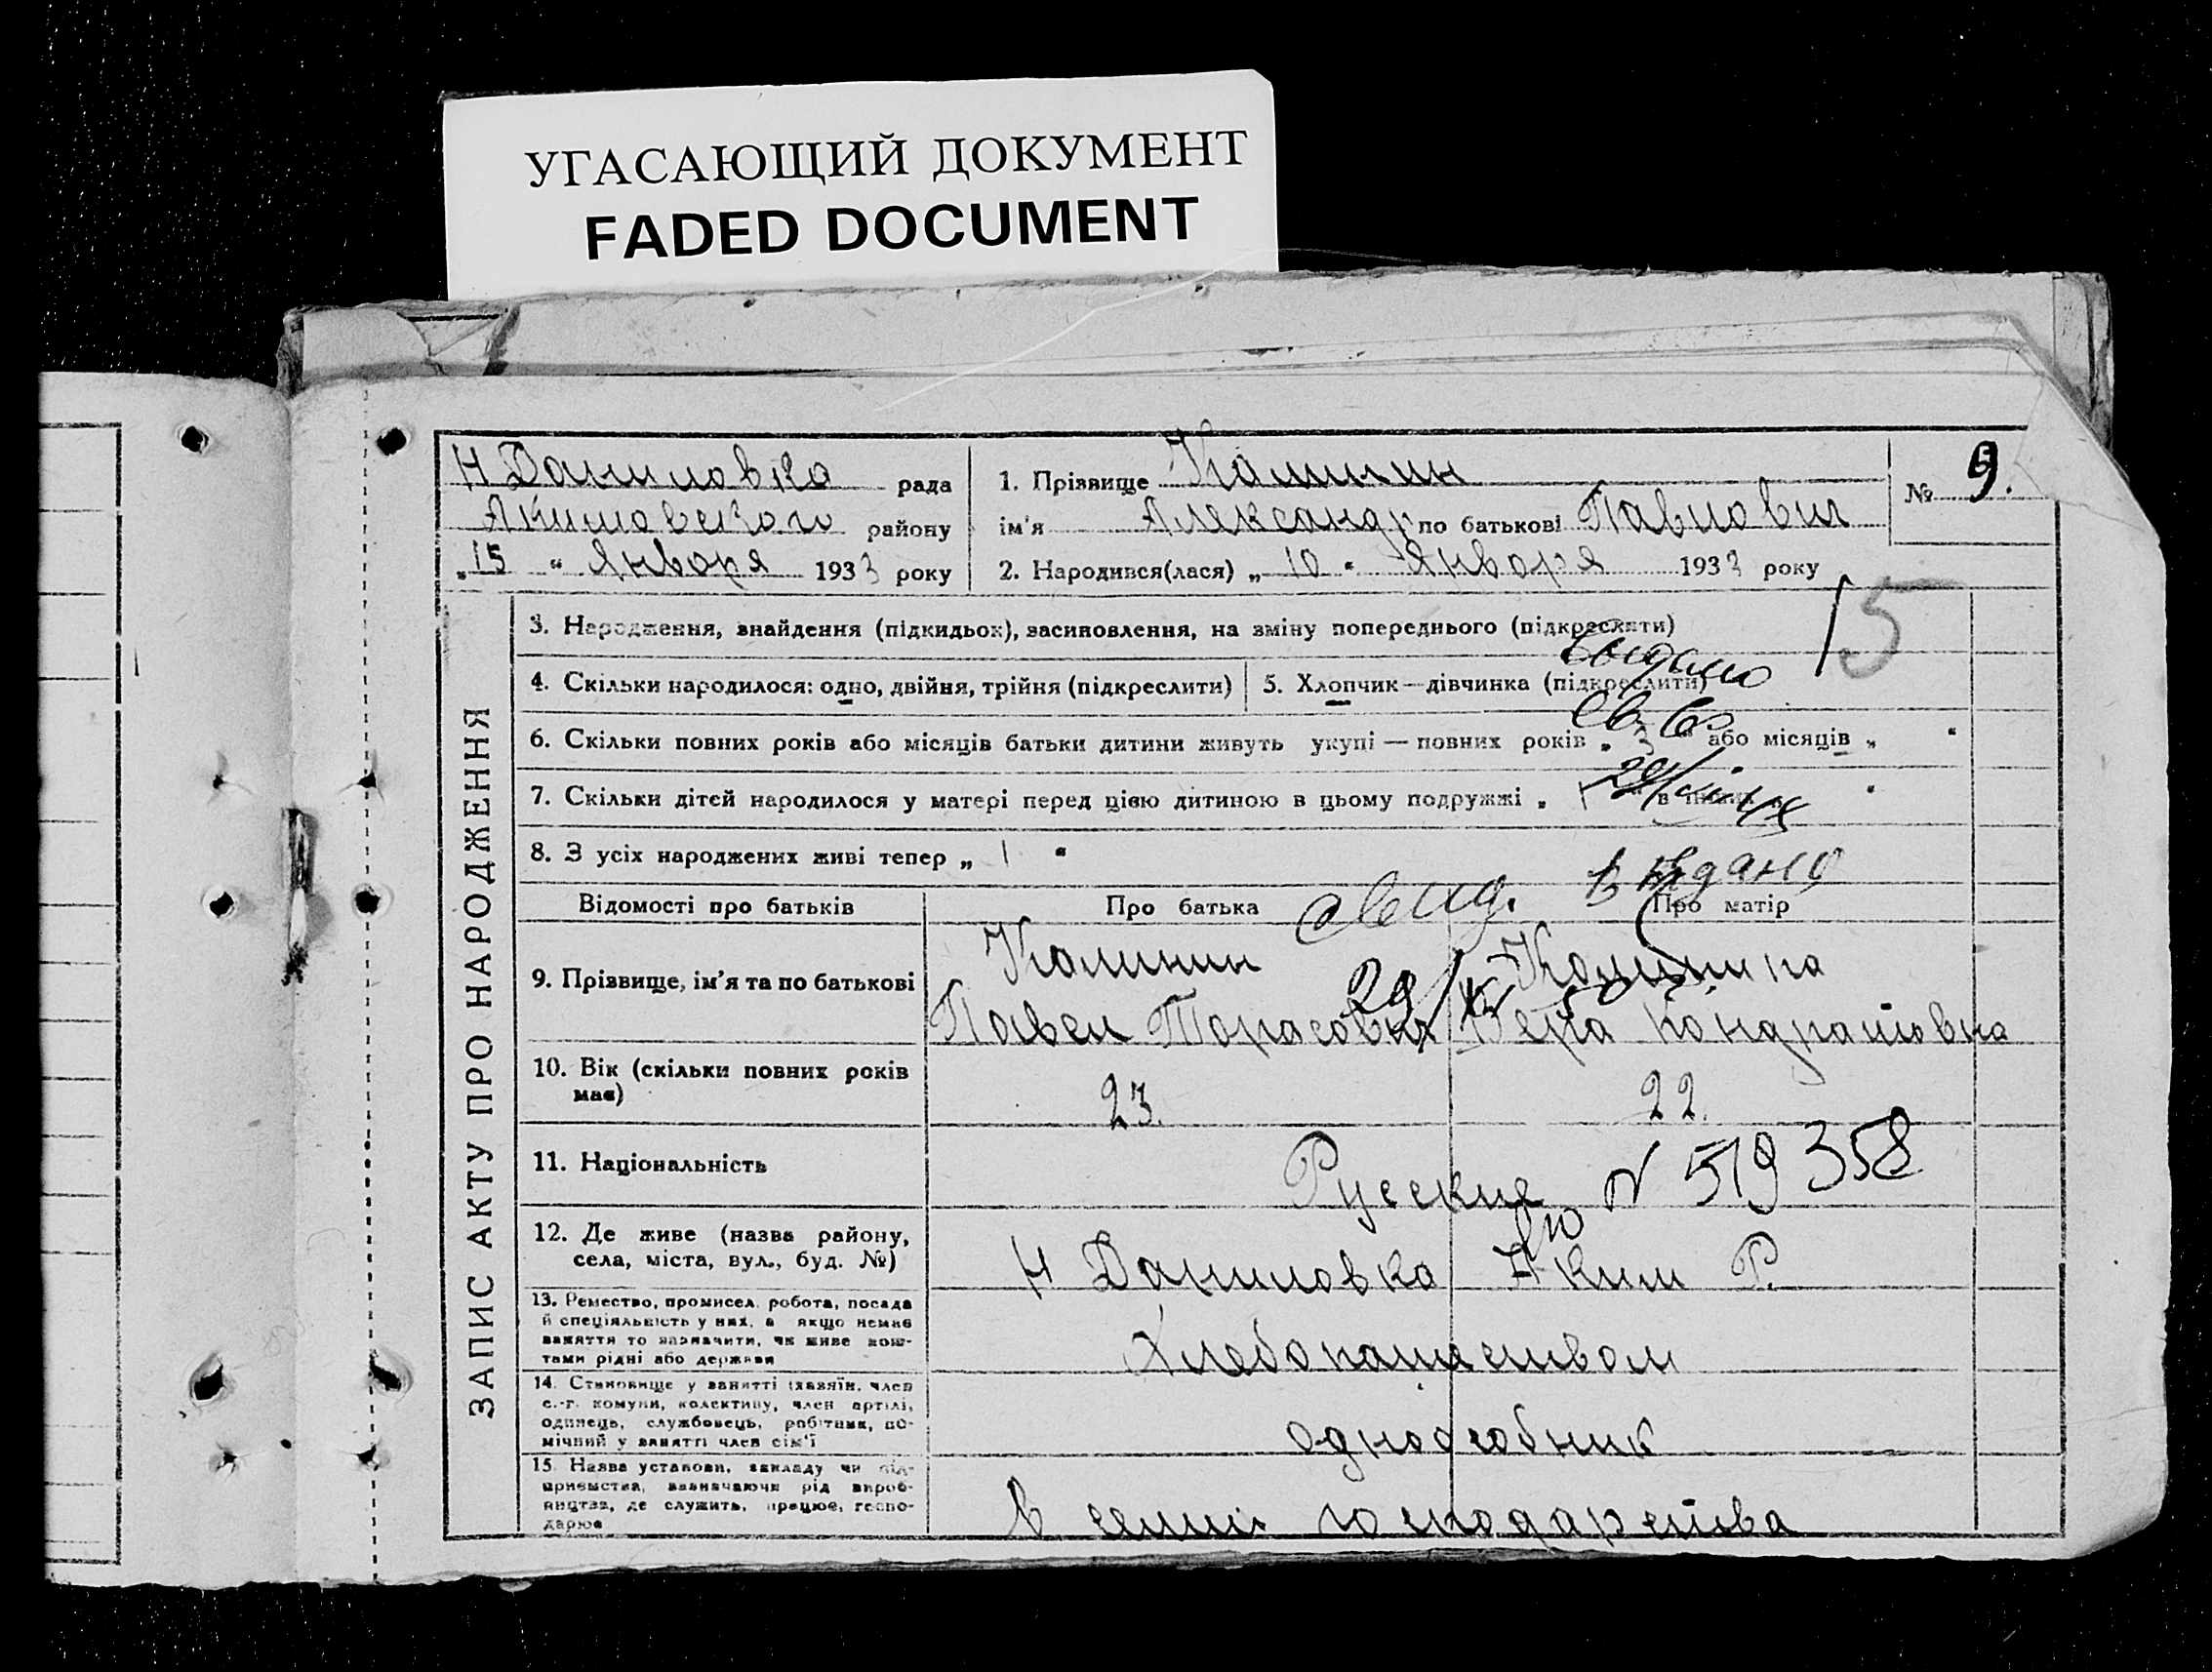 УГАСАЮЩИЙ ДОКУМЕНТ
FADED DOCUMENT
Н Даниловка рада
Акимовского району
„15 “ Января 1933 року
1. Прізвище Калинин
ім'я Александр по батькові Павлович
2. Народився(лася) „ 10 “ Января 1933 року
№ 9.
15
ЗАПИС АКТУ ПРО НАРОДЖЕННЯ
3. Народження, знайдення (підкидьок), засиновлення, на зміну попереднього (підкреслити)
4. Скільки народилося: одно, двійня, трійня (підкреслити)
5. Хлопчик—дівчинка (підкреслити)
Выдано
6. Скільки повних років або місяців батьки дитини живуть укупі — повних років „ 3 “ або місяців „ “
7. Скільки дітей народилося у матері перед цією дитиною в цьому подружжі „ 1 “ в інших „ “
8. З усіх народжених живі тепер „ 1 “
Відомості про батьків
Про батька
свид. Выдано
Про матір
9. Прізвище, ім'я та по батькові
Калинин
Павел Тарасович
Калинина
Вера Кондратовна
10. Вік (скільки повних років має)
23.
22.
11. Національність
Русские
N 519358
12. Де живе (назва району,
села, міста, вул., буд. №)
Н Даниловка Аким Р.
13. Ремество, промисел, робота, посада
й спеціяльність у них, а якщо немає
заняття то зазначити, чи живе кош-
тами рідні або держави
Хлебопашеством
14. Становище у занятті (хазяїн, член
с.-г. комуни, колективу, член артілі,
одинець, службовець, робітник, по-
мічний у занятті член сім'ї
одноособник
15. Назва установи, закладу чи під-
приємства, зазначаючи рід вироб-
ництва, де служить, працює, госпо-
дарює
в господарства